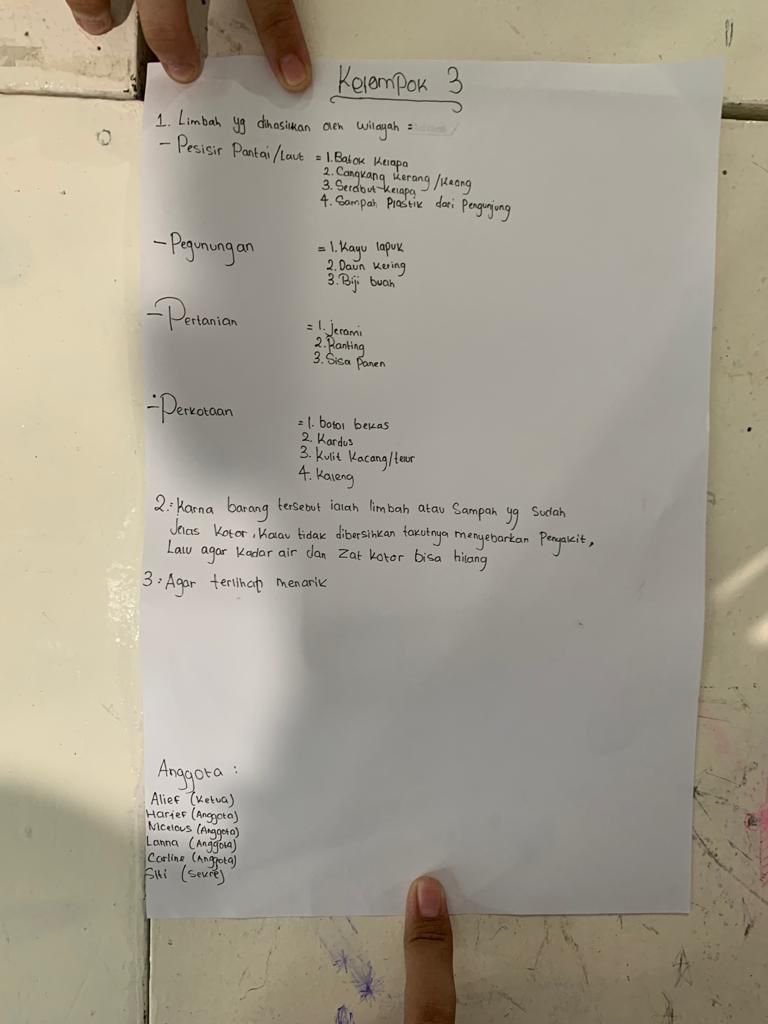 Kelompok 3
1. Limbah yg dihasilkan oleh wilayah =
- Pesisir Pantai/Laut = 1. Batok Kelapa
2. Cangkang Kerang/Keong
3. Serabut Kelapa
4. Sampah Plastik dari Pengunjung
- Pegunungan = 1. Kayu lapuk
2. Daun Kering
3. Biji buah
- Pertanian = 1. Jerami
2. Ranting
3. Sisa Panen
- Perkotaan = 1. botol bekas
2. Kardus
3. Kulit Kacang/telur
4. Kaleng
2. Karna barang tersebut ialah limbah atau Sampah yg sudah
Jelas Kotor, Kalau tidak dibersihkan takutnya menyebarkan Penyakit,
Lalu agar Kadar air dan Zat Kotor bisa hilang
3. Agar terlihat menarik
Anggota :
Alief (Ketua)
Harief (Anggota)
Nicelous (Anggota)
Lanna (Anggota)
Carline (Anggota)
Siti (Sekre)